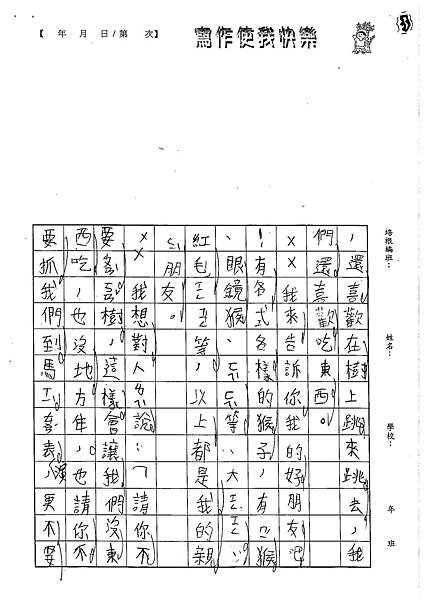 【 年 月 日/第 次】
寫作使我快樂
培根編班：
姓名：
學校：
年 班
，還喜歡在樹上跳來跳去，我
們還喜歡吃東西。
××我來告訴你我的好朋友吧
！有各式各樣的猴子，有猴
、眼鏡猴、等、大
紅毛等，以上都是我的親
朋友。
××我想對人說：「請你不
要砍樹，這樣會讓我們沒東
西吃，也沒地方住，也請你不
要抓我們到馬表演，更不要